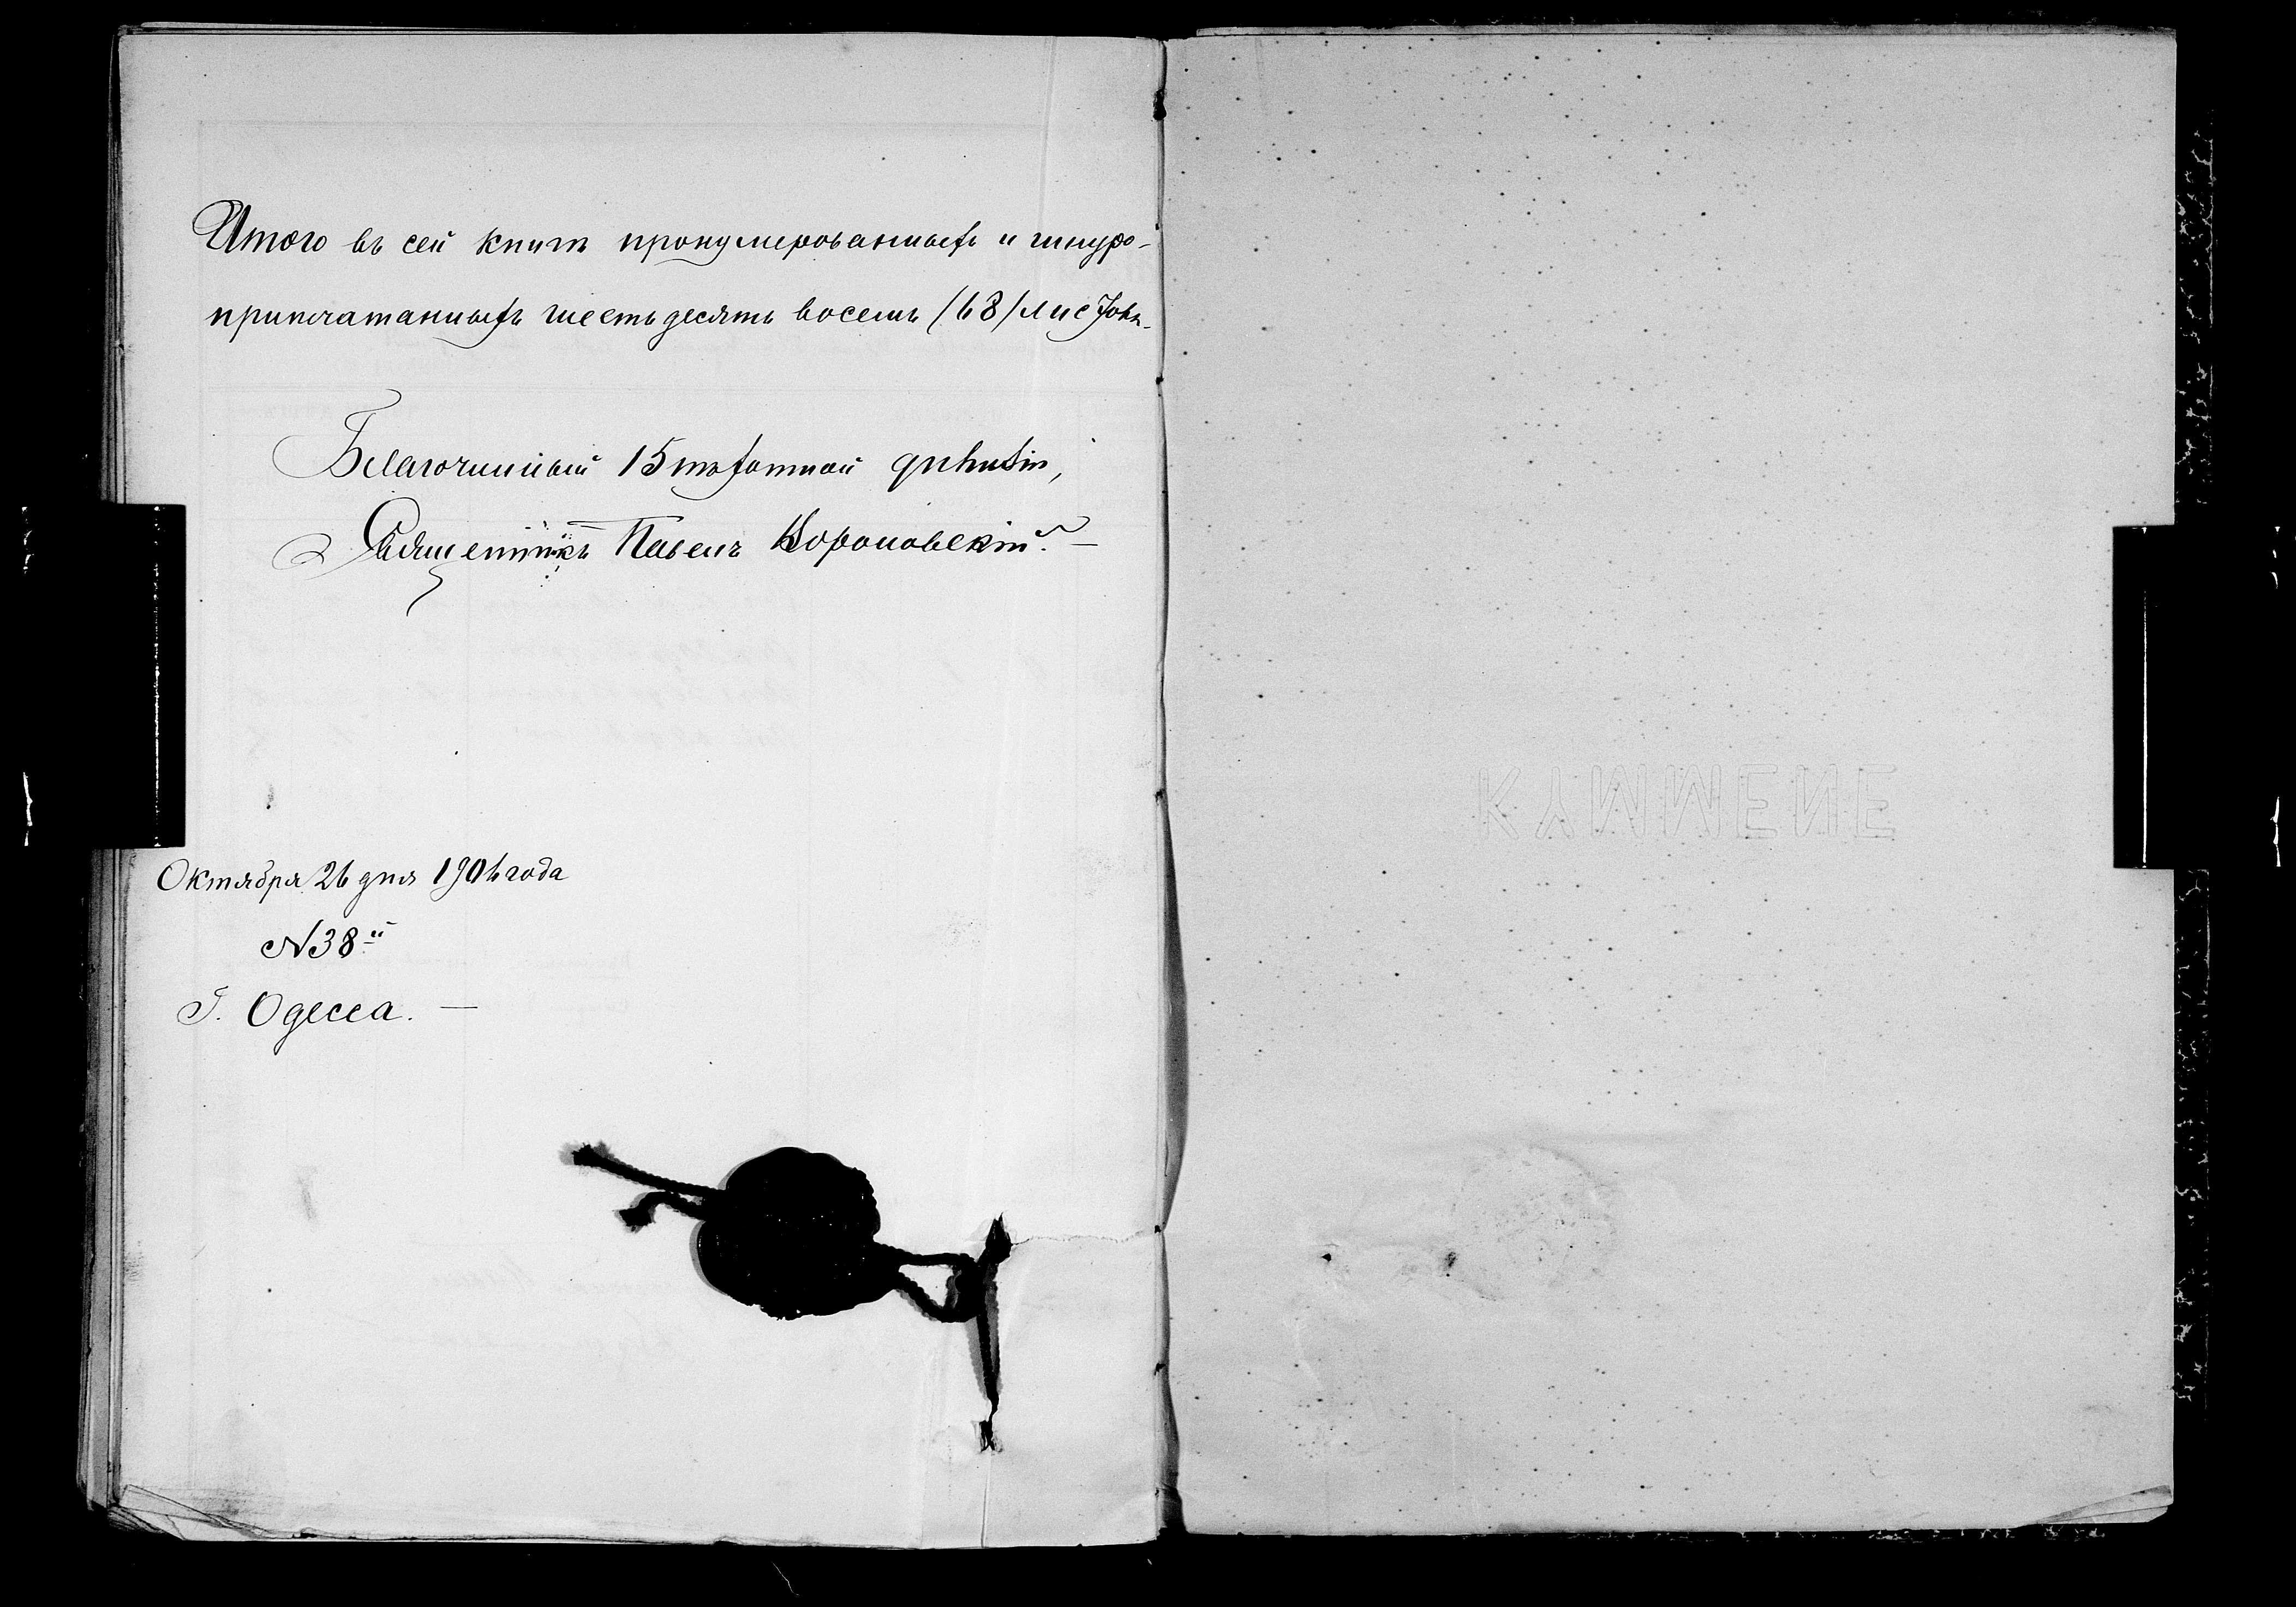 Итого въ сей книгѣ пронумерованныхъ и шнуро-
припечатанныхъ шестьдесятъ восемь (68) листовъ.
Благочинный 15 пѣхотной дивизіи,
Священникъ Павелъ
Октября 26 дня 1906 года
N 38
Г. Одесса. —
KYMMENE